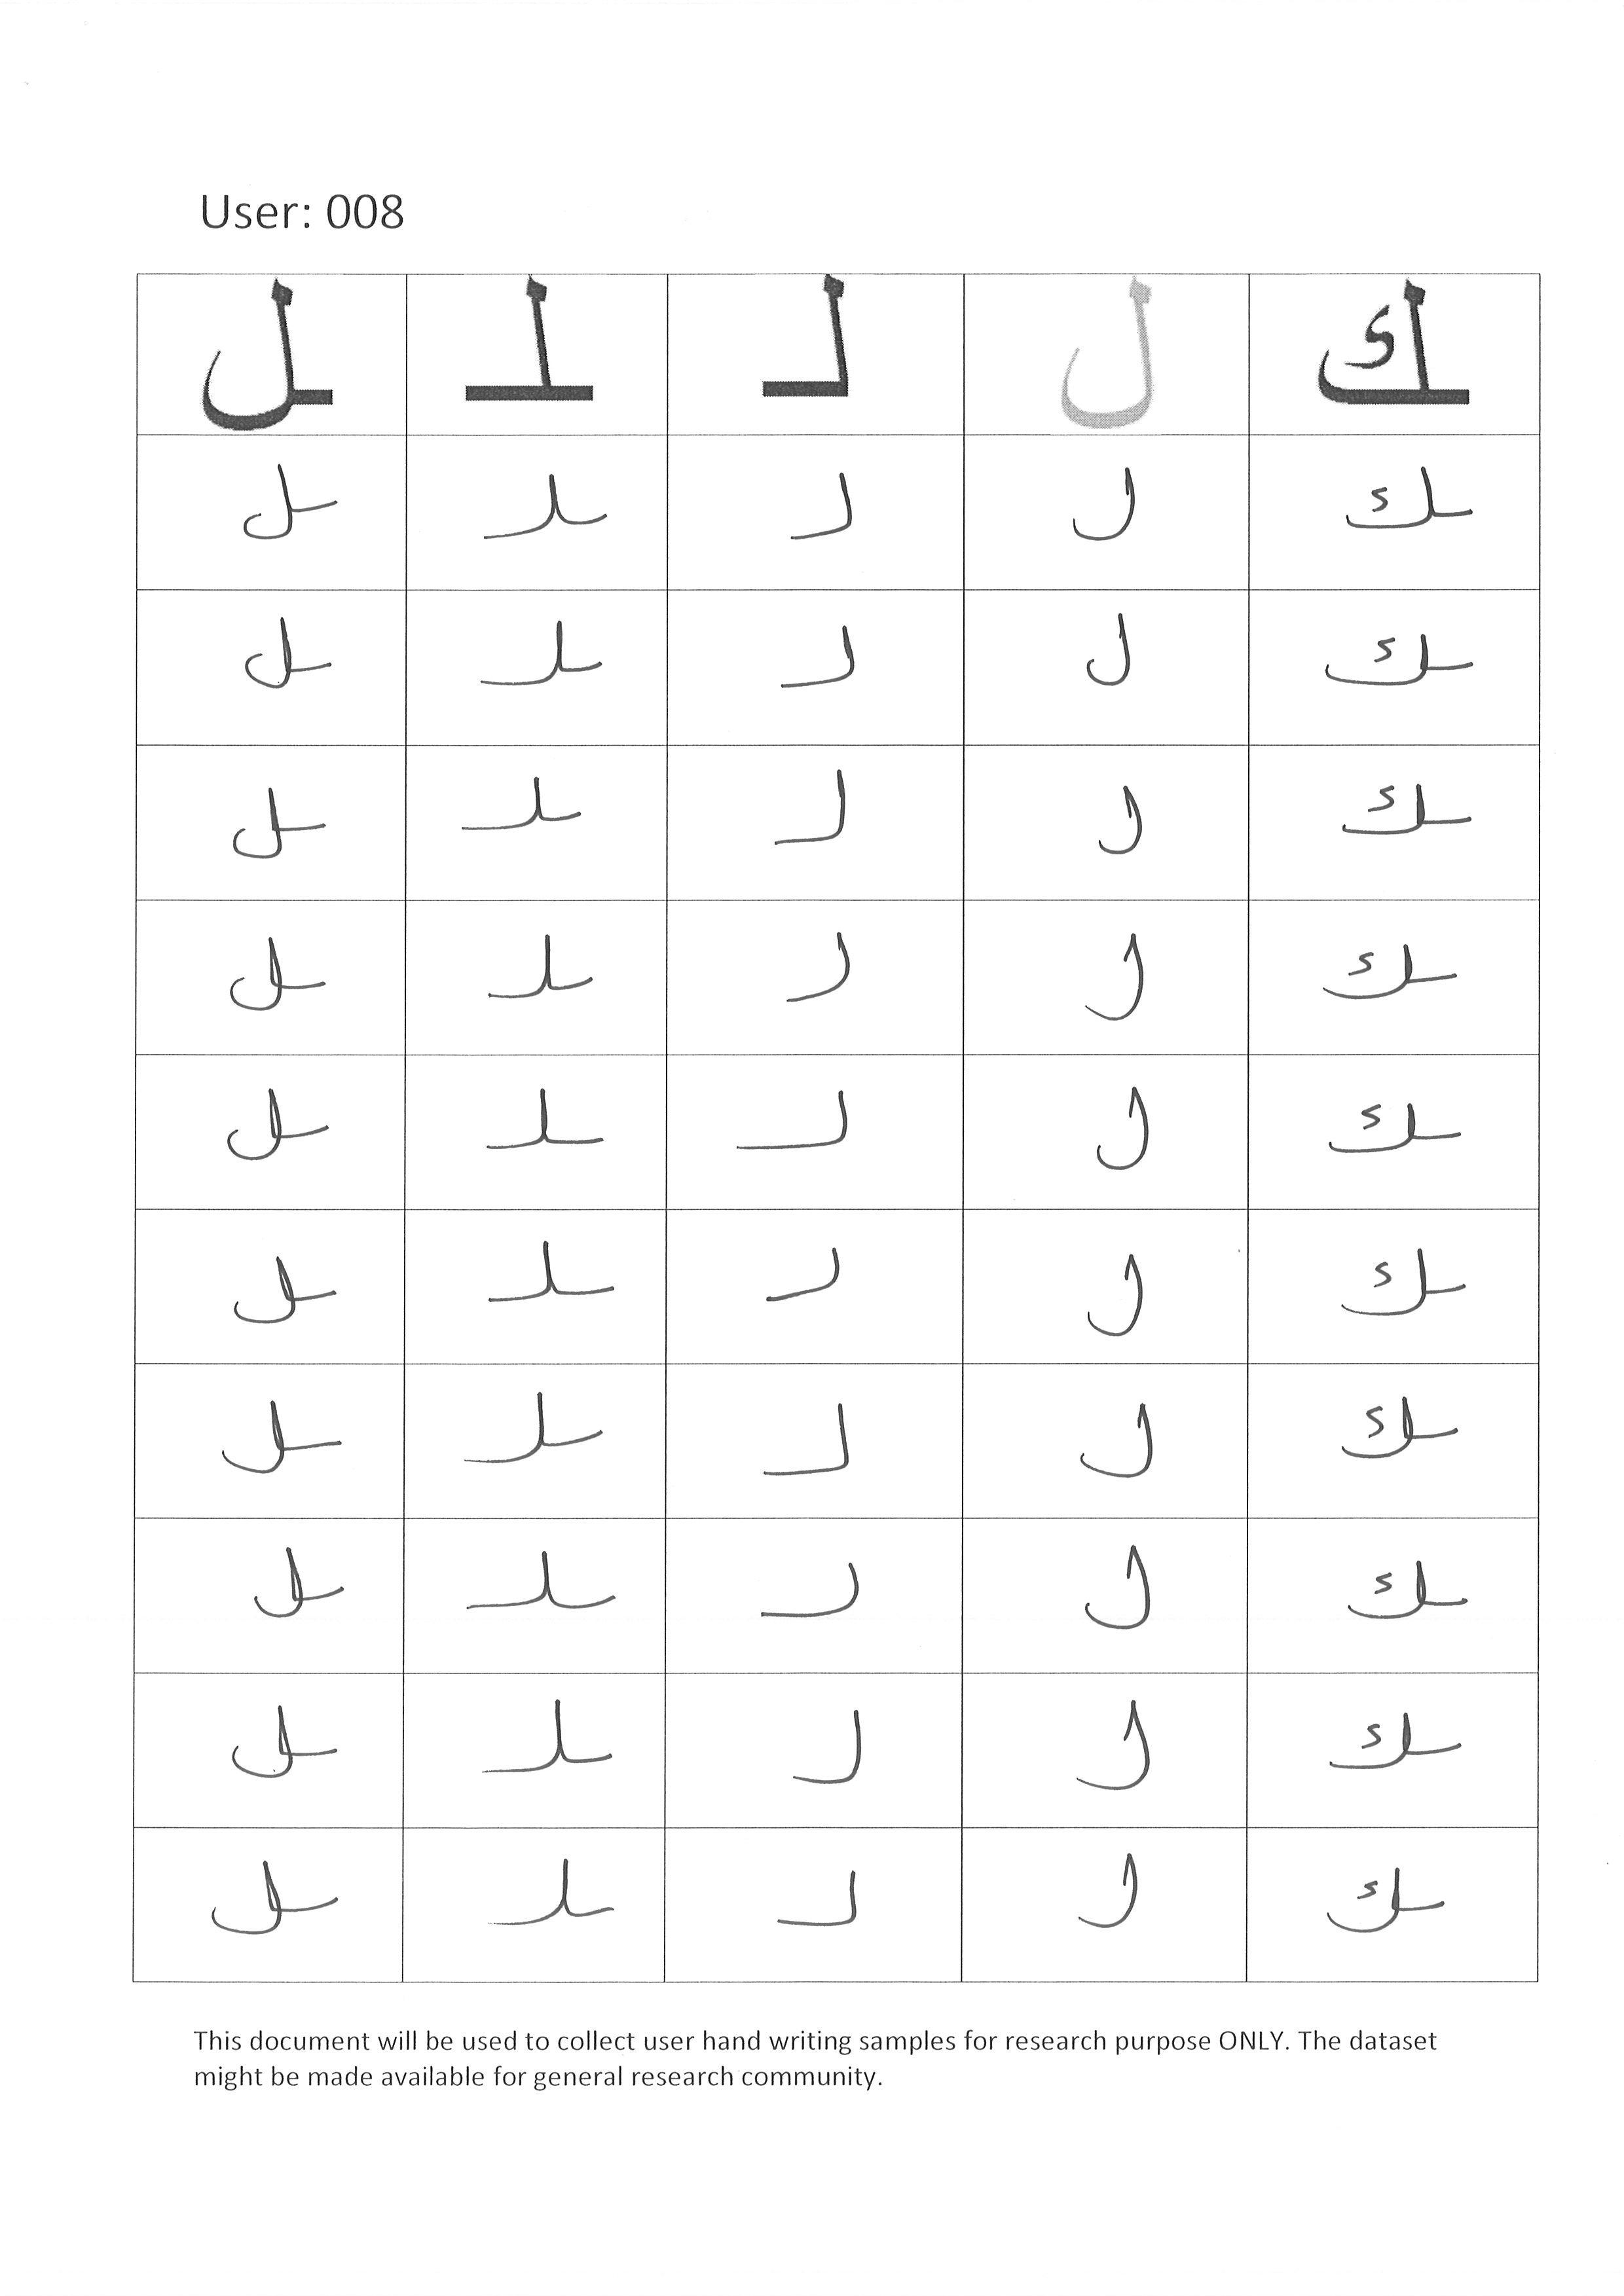 User: 008
ـك ل لـ ـلـ ـل
ـك ل لـ ـلـ ـل
ـك ل لـ ـلـ ـل
ـك ل لـ ـلـ ـل
ـك ل لـ ـلـ ـل
ـك ل لـ ـلـ ـل
ـك ل لـ ـلـ ـل
ـك ل لـ ـلـ ـل
ـك ل لـ ـلـ ـل
ـك ل لـ ـلـ ـل
ـك ل لـ ـلـ ـل
This document will be used to collect user hand writing samples for research purpose ONLY. The dataset
might be made available for general research community.